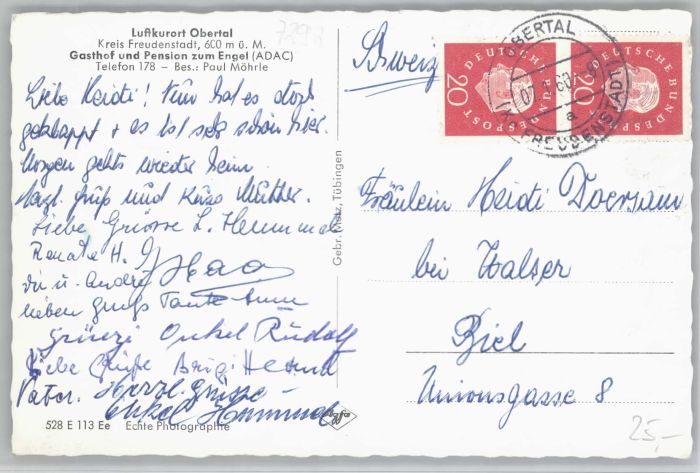 Luftkurort Obertal
Kreis Freudenstadt, 600 m ü. M.
Gasthof und Pension zum Engel (ADAC)
Telefon 178 – Bes.: Paul Möhrle
Liebe Heidi! Nun hat es doch
geklappt + es ist sehr schön hier.
Morgen gehts wieder heim.
Herzl. Gruß und Kuss Mutter.
Liebe Grüsse L. Hemmel
Renate H.
Dir u. André
lieben Gruß Tante
Onkel Rudolf
Liebe Grüße Brigi
Vater. Herzl. Grüsse
Onkel
528 E 113 Ee Echte Photographie
Gebr. Metz, Tübingen
Agfa
Schweiz
DEUTSCHE BUNDESPOST
20
DEUTSCHE BUNDESPOST
20
OBERTAL
a
KR. FREUDENSTADT
Fräulein Heidi
bei Walser
Biel
Unionsgasse 8
25,-